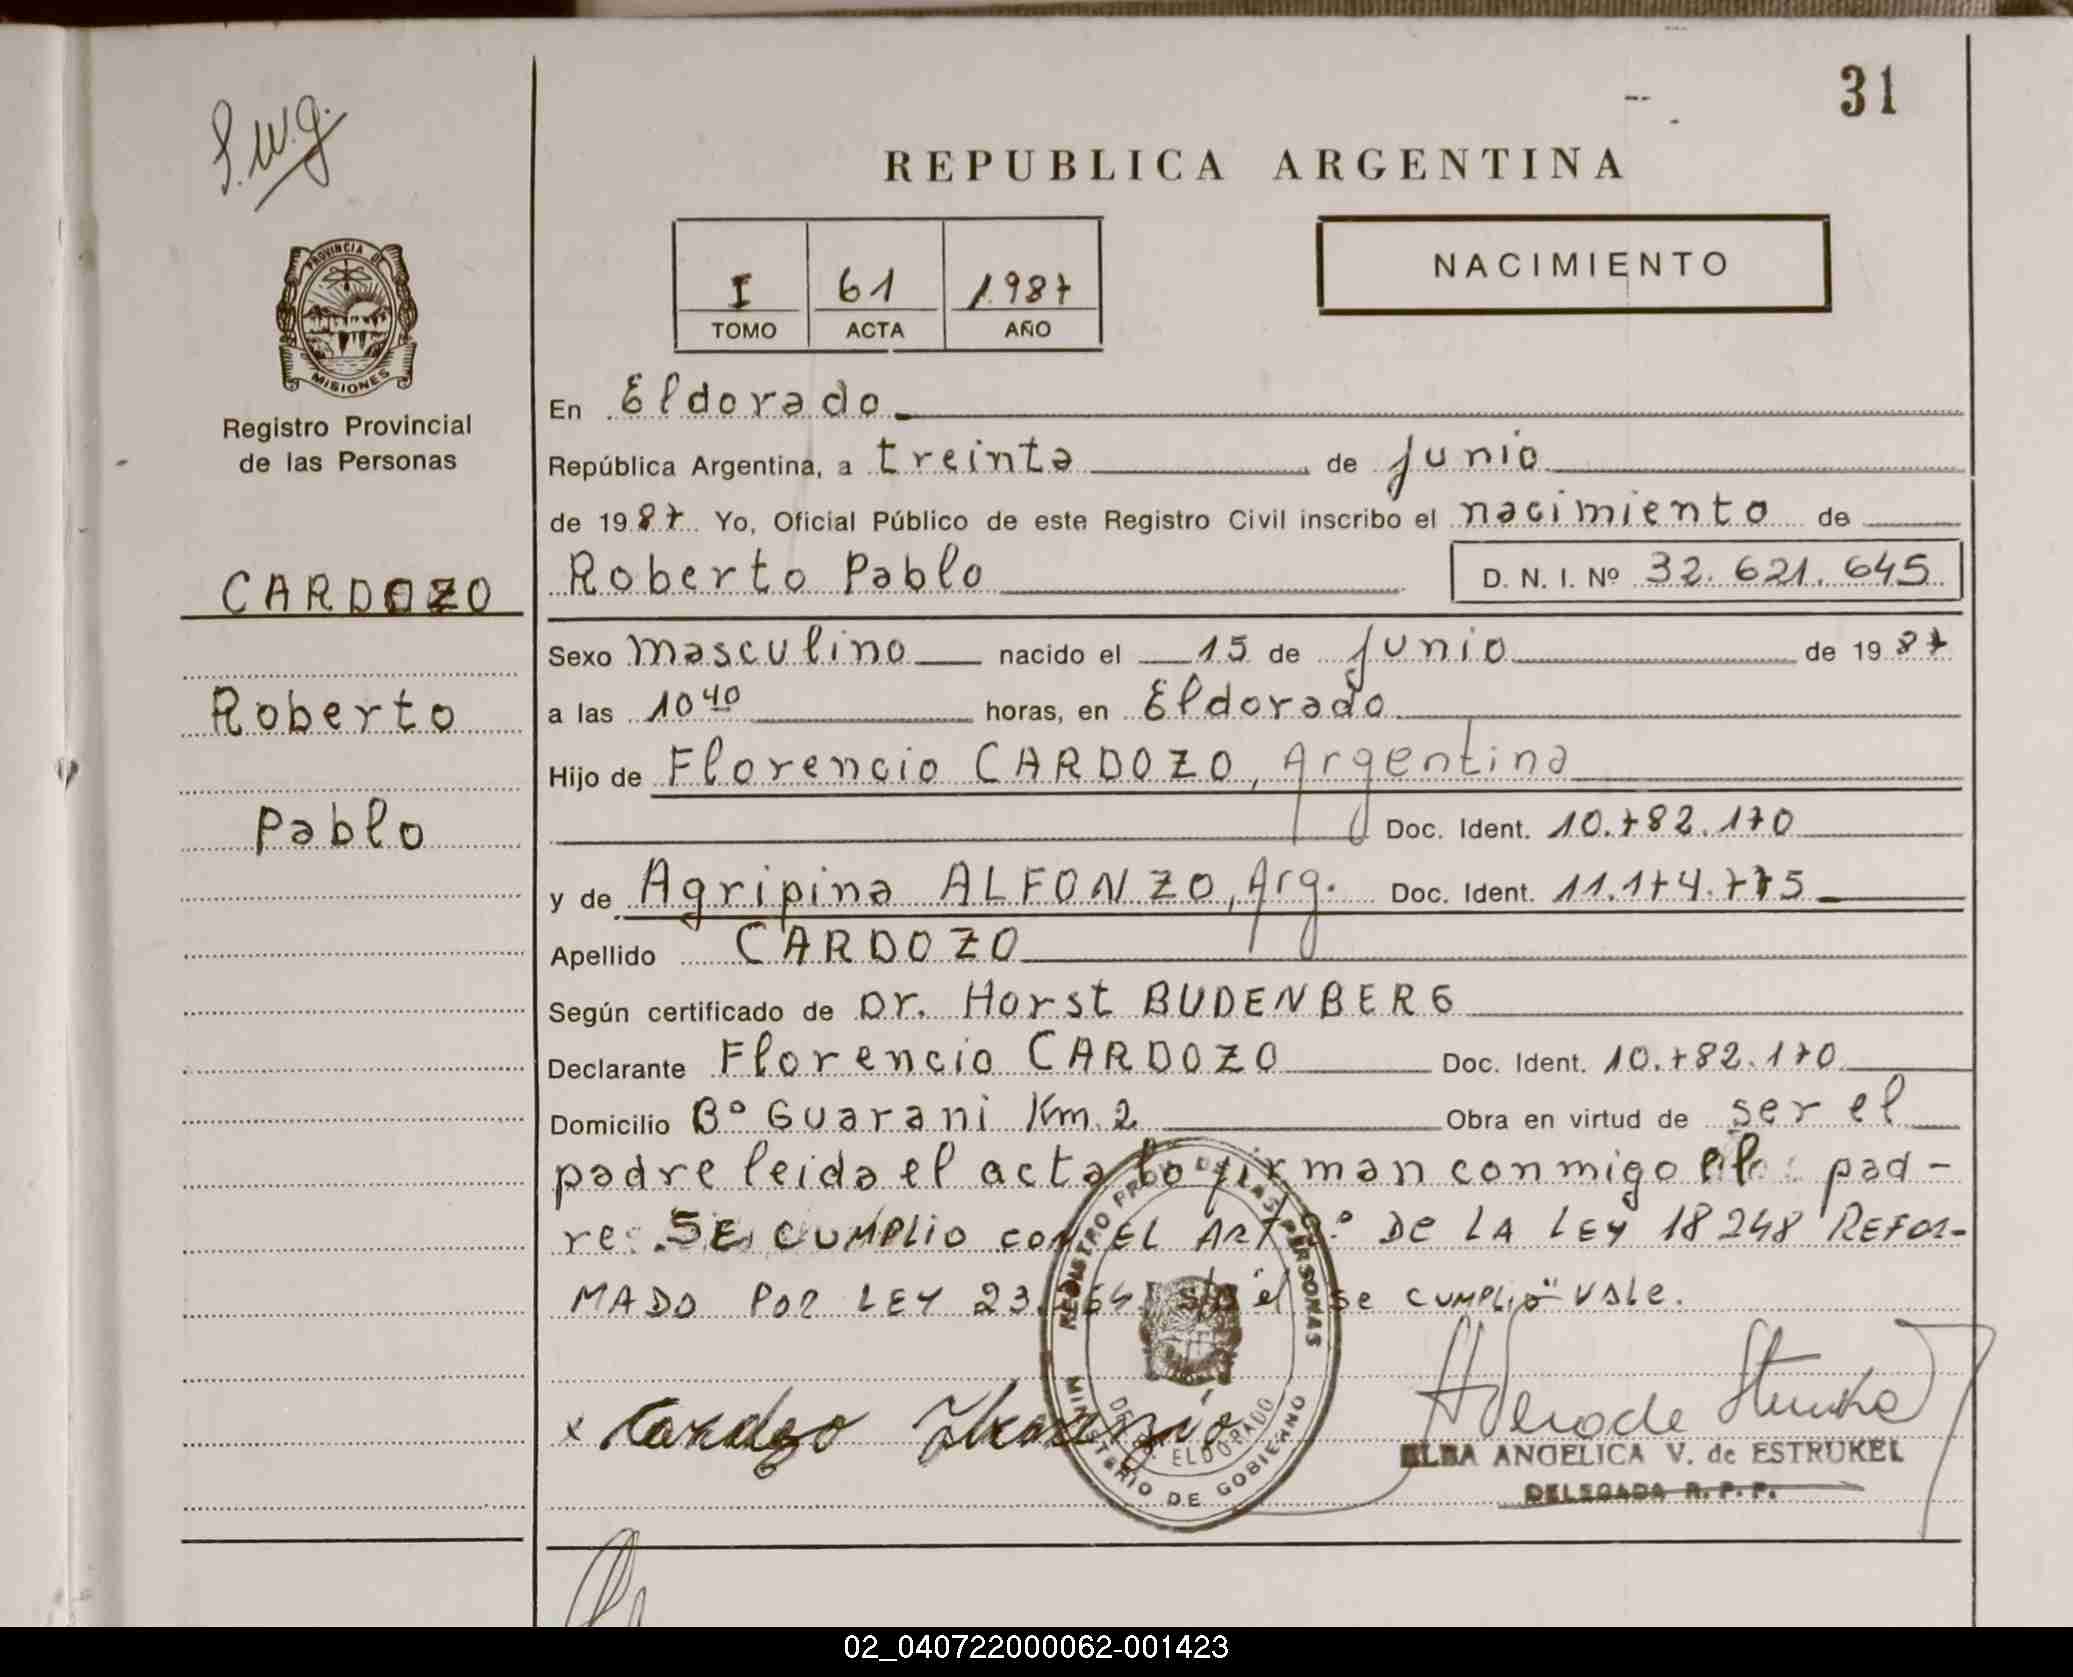 31
S.w.g.
REPUBLICA ARGENTINA
I 61 1987
TOMO ACTA AÑO
NACIMIENTO
PROVINCIA DE
MISIONES
Registro Provincial
de las Personas
CARDOZO
Roberto
Pablo
En Eldorado
República Argentina, a treinta de junio
de 1987 Yo, Oficial Público de este Registro Civil inscribo el nacimiento de
Roberto Pablo D. N. I. Nº 32.621.645
Sexo masculino nacido el 15 de junio de 1987
a las 10 40 horas, en Eldorado
Hijo de Florencio CARDOZO, Argentina
Doc. Ident. 10.782.170
y de Agripina ALFONZO, Arg. Doc. Ident. 11.174.775
Apellido CARDOZO
Según certificado de Dr. Horst BUDENBERG
Declarante Florencio CARDOZO Doc. Ident. 10.782.170
Domicilio Bº Guarani Km. 2 Obra en virtud de ser el
padre leida el acta lo firman conmigo el pad-
re. SE CUMPLIO CON EL ART º DE LA LEY 18248 REFOR-
MADO POR LEY 23. el se cumplió" vale.
x Cardozo Florencio
REGISTRO PROV. DE LAS PERSONAS
ELDORADO
MINISTERIO DE GOBIERNO
ELBA ANGELICA V. de ESTRUKEL
DELEGADA R. P. P.
02_040722000062-001423